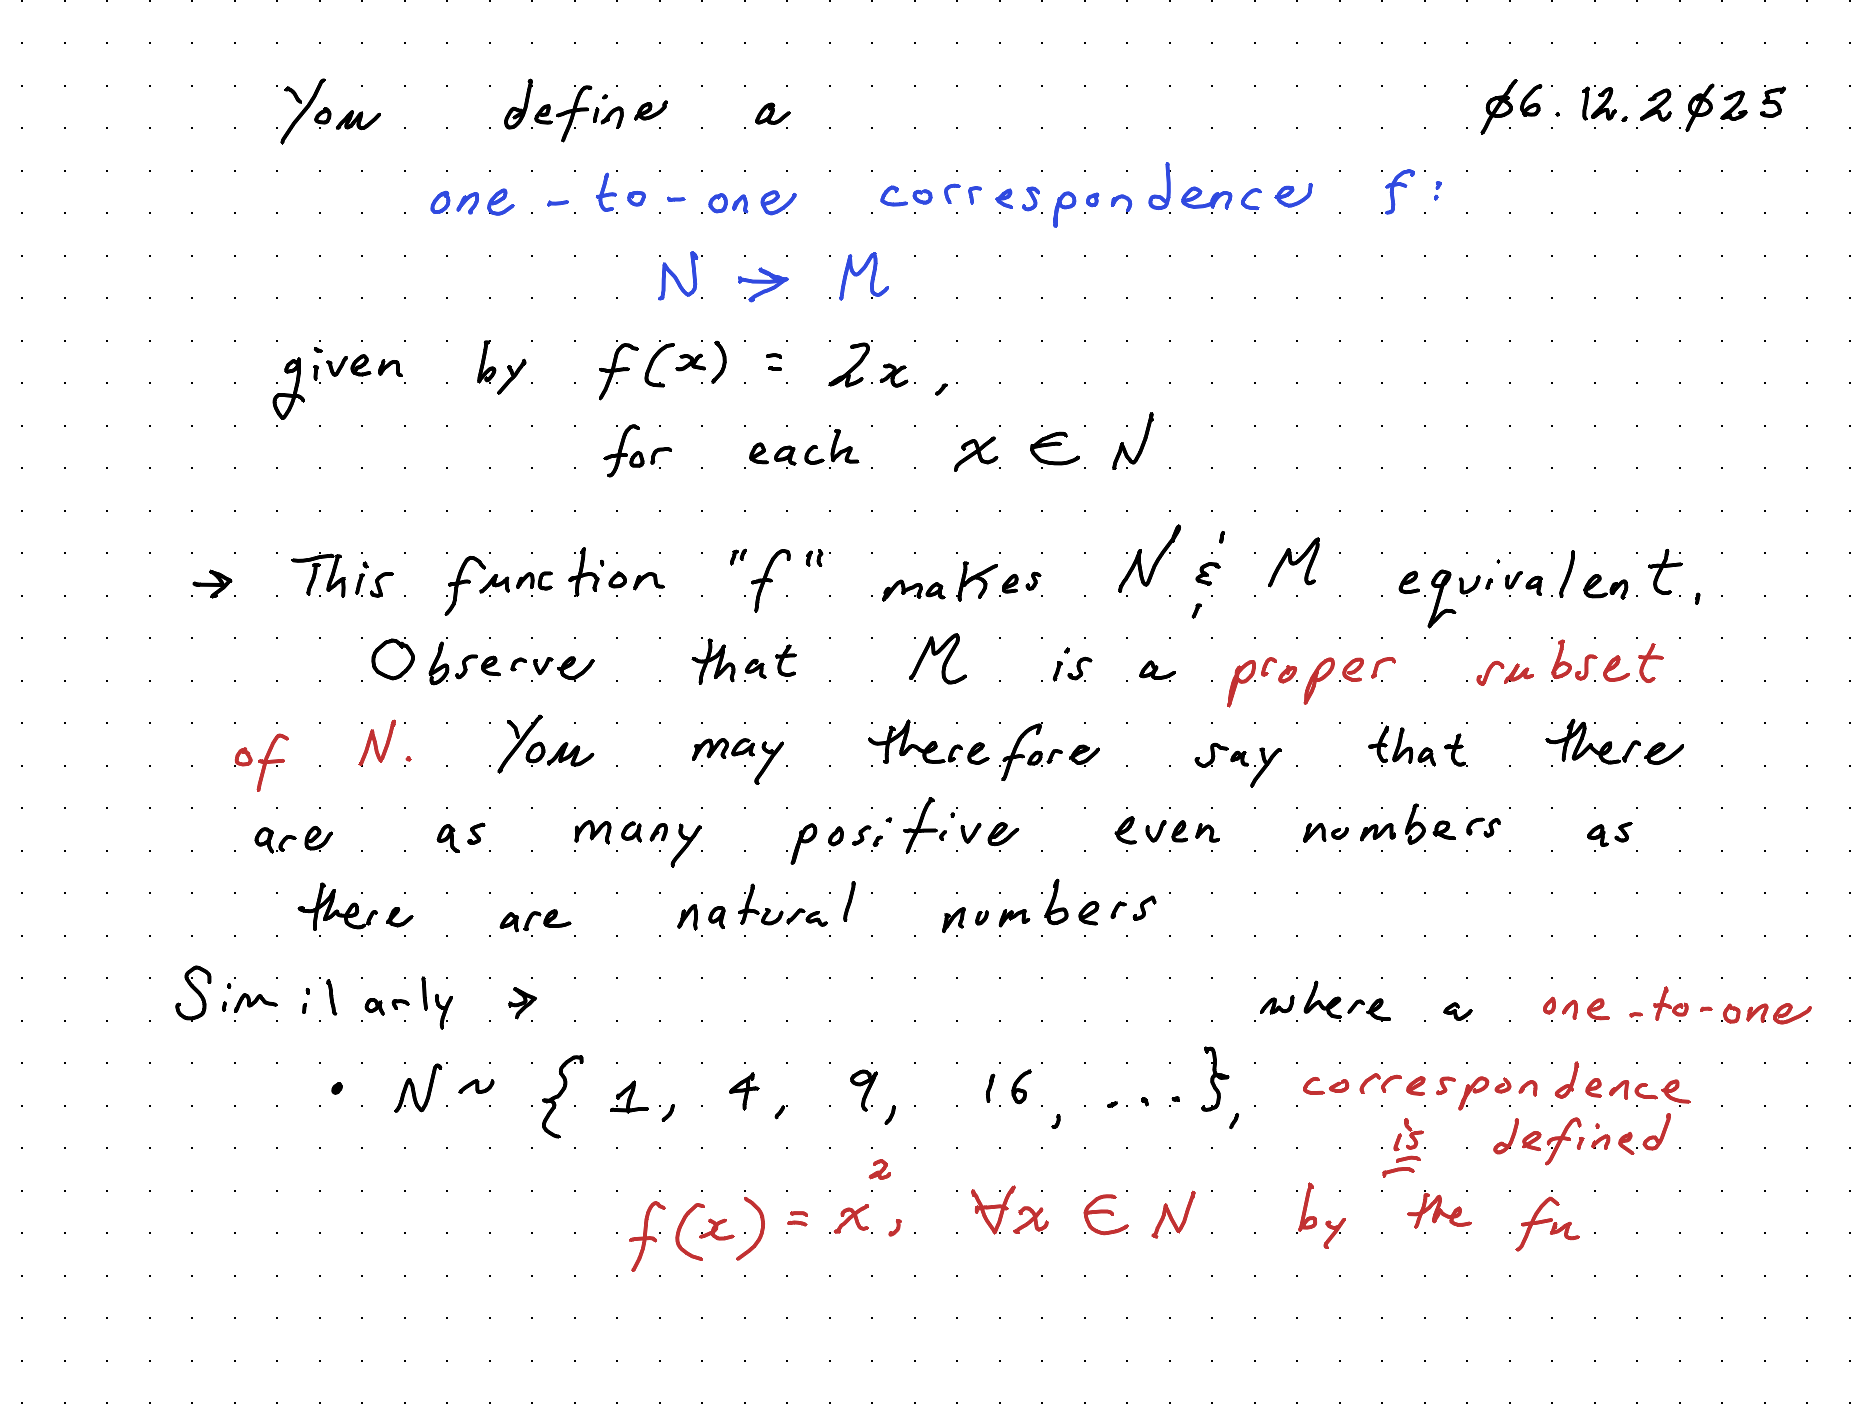 You define a
ø6.12.2ø25
one-to-one correspondence f:
N → M
given by f(x) = 2x,
for each x ∈ N
→ This function "f" makes N & M equivalent.
Observe that M is a proper subset
of N. You may therefore say that there
are as many positive even numbers as
there are natural numbers
Similarly →
• N ~ { 1, 4, 9, 16, ...},
where a one-to-one
correspondence
is defined
by the fn
f(x) = x², ∀x ∈ N